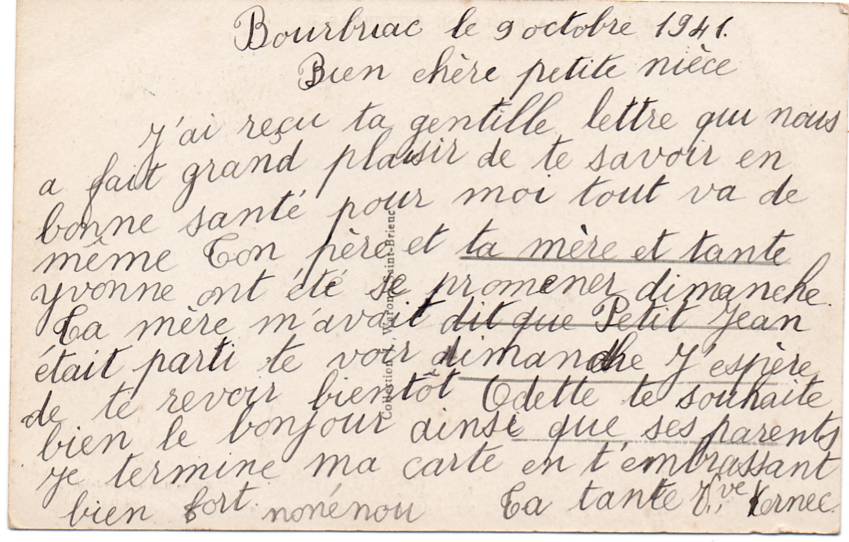 Bourbriac le 9 octobre 1941.
Bien chère petite nièce
J'ai reçu ta gentille lettre qui nous
a fait grand plaisir de te savoir en
bonne santé pour moi tout va de
même Ton père et ta mère et tante
Yvonne ont été se promener dimanche.
Ta mère m'avait dit que Petit Jean
était parti te voir dimanche J'espère
de te revoir bientôt Odette te souhaite
bien le bonjour ainsi que ses parents
Je termine ma carte en t'embrassant
bien fort. nonénou Ta tante Vve Kernec.
Collection Saint-Brieuc